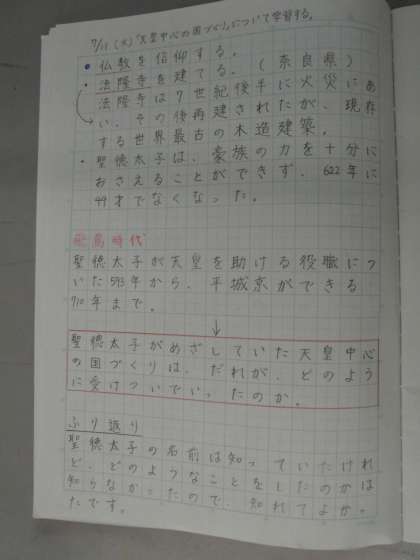 7/11(火)「天皇中心の国づくり」について学習する。
・仏教を信仰する。
・法隆寺を建てる。(奈良県)
法隆寺は7世紀後半に火災にあ
い、その後再建されたが、現存
する世界最古の木造建築。
・聖徳太子は、豪族の力を十分に
おさえることができず、622年に
49才でなくなった。
飛鳥時代
聖徳太子が天皇を助ける役職につ
いた593年から、平城京ができる
710年まで。
↓
聖徳太子がめざしていた天皇中心
の国づくりは、だれが、どのよう
に受けついでいったのか。
ふり返り
聖徳太子の名前は知っていたけれ
ど、どのようなことをしたのかは
知らなかったので、知れてよかっ
たです。